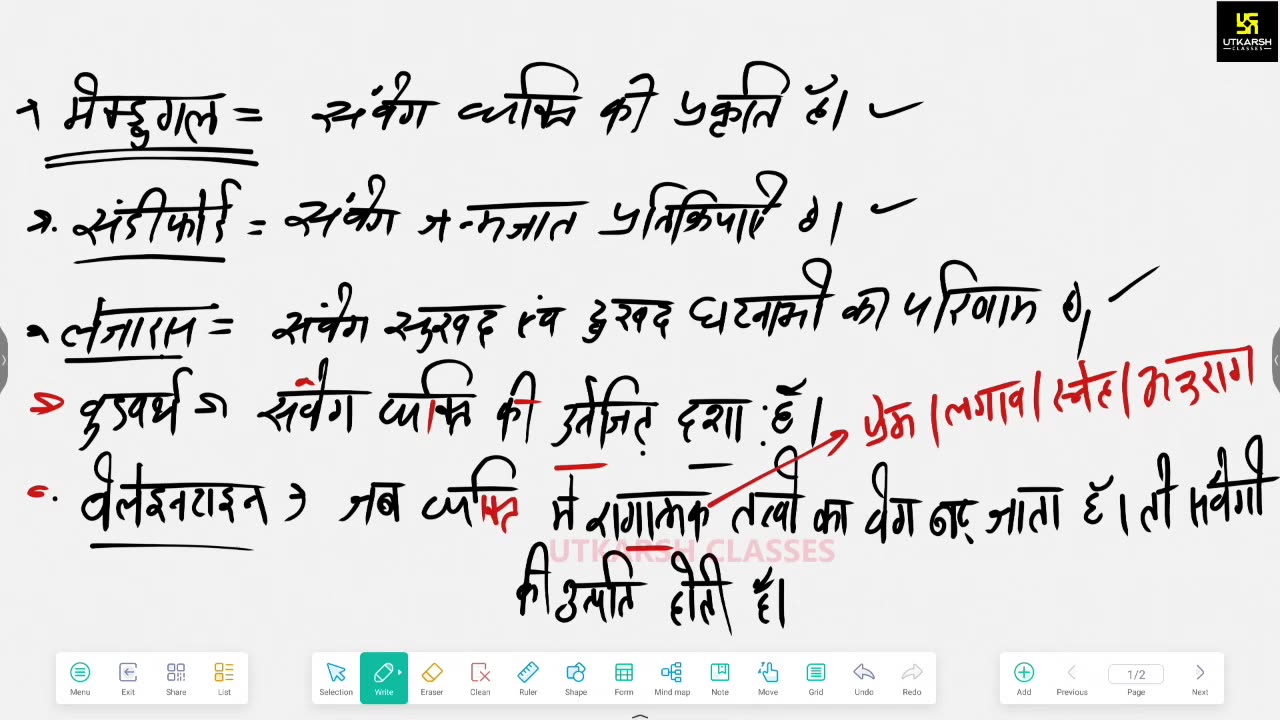 UTKARSH
CLASSES
→ मैक्डुगल = संवेग व्यक्ति की प्रकृति है।
→ संडीफोर्ड = संवेग जन्मजात प्रतिक्रियाएँ है।
→ लेजारस = संवेग सुखद एंव दुखद घटनाओ का परिणाम है,
⇒ वुडवर्थ ⇒ संवेग व्यक्ति की उतेजित दशा है।
प्रेम / लगाव / स्नेह / अनुराग
वेलेइनटाइन → जब व्यक्ति मे रागात्मक तत्वो का वेग बढ़ जाता है। तो संवेगो
की उत्पति होती है।
UTKARSH CLASSES
Menu Exit Share List Selection Write Eraser Clean Ruler Shape Form Mind map Note Move Grid Undo Redo Add Previous 1/2 Page Next